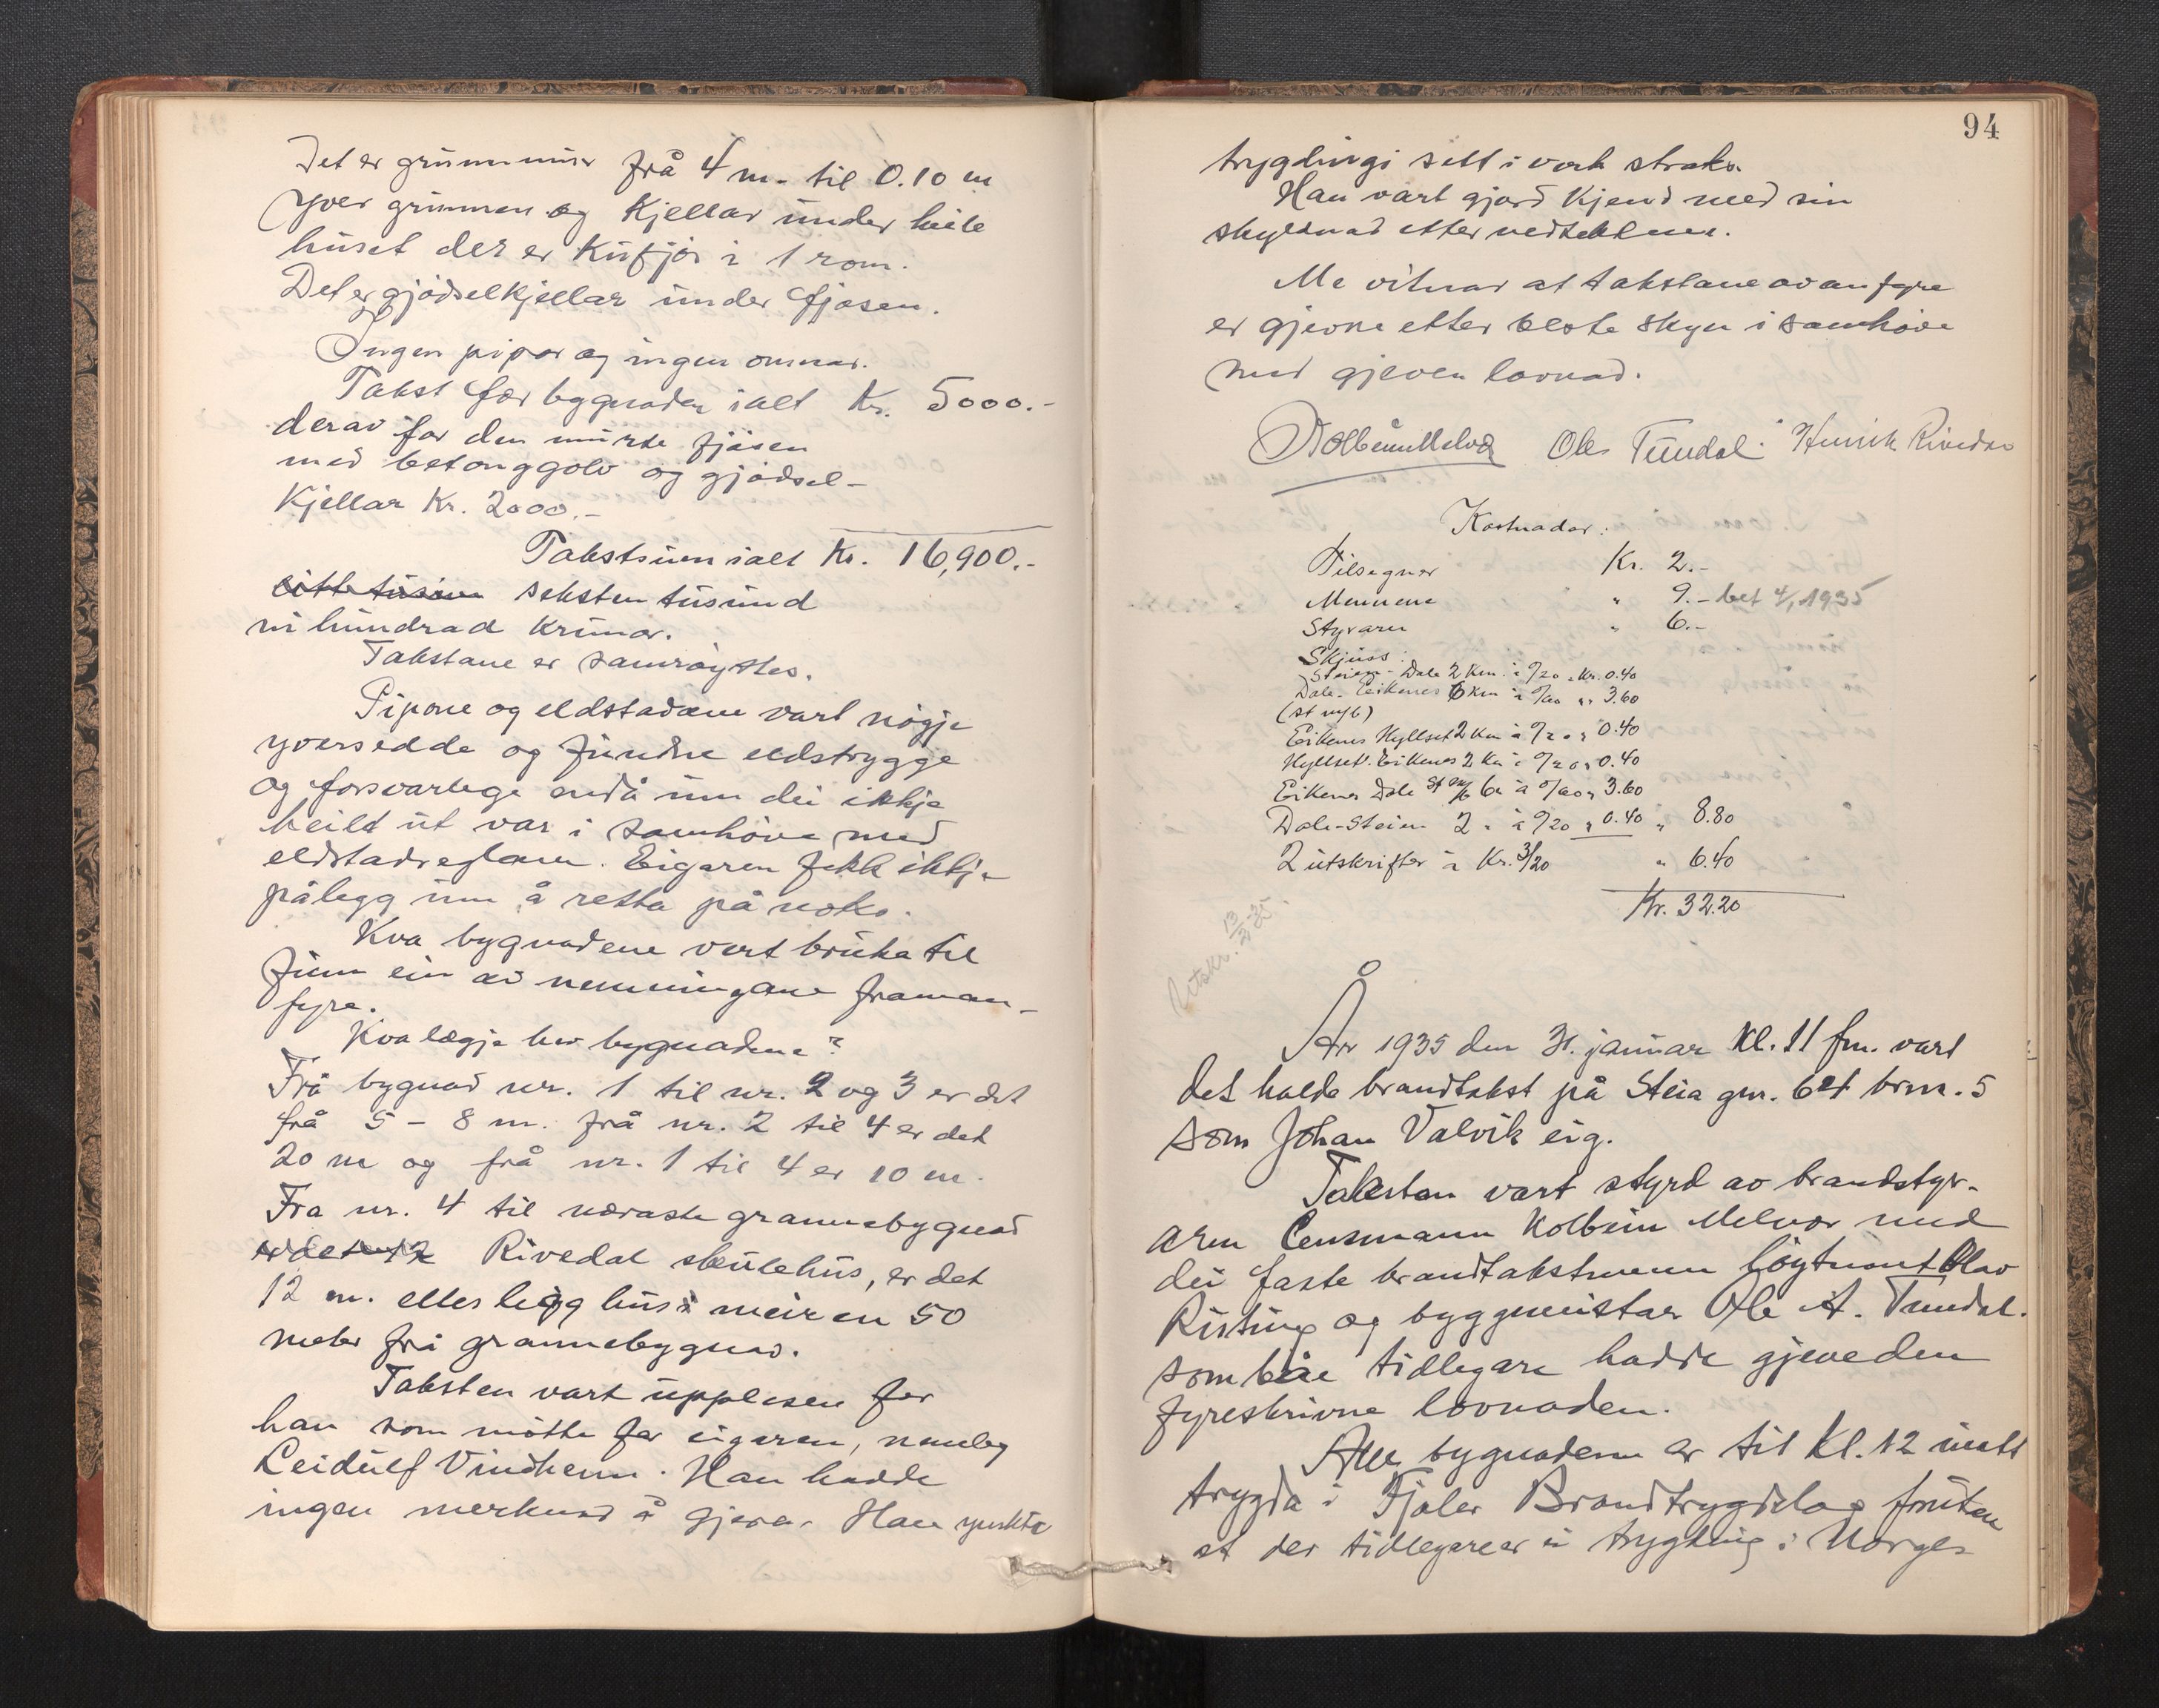 Det er grunnmur frå 4 m. til 0.10 m
yver grunnen og Kjellar under heile
huset der er Kufjøs i 1 rom.
Det er gjødselkjellar under fjøsen.
Ingen pipor og ingen omnar.
Takst for bygnaden ialt Kr. 5000.-
derav for den murte fjøsen
med betonggolv og gjødsel-
Kjellar Kr. 2000.-
Takstsum ialt Kr. 16,900.-
seksten tusund
ni hundrad Krunor.
Takstane er samrøystes.
Pipone og eldstadane vart nøgje
yversedde og funne eldstrygge
og forsvarlege endå um dei ikkje
heilt ut var i samhøve med
eldstadreglane. Eigaren fekk ikkje
pålegg um å retta på noko.
Kva bygnadene vert bruka til
finn ein av nemningane framan-
fyre.
Kva lægje hev bygnadene?
Frå bygnad nr. 1 til nr. 2 og 3 er det
frå 5 - 8 m. frå nr. 2 til 4 er det
20 m og frå nr. 1 til 4 er 10 m.
Fra nr. 4 til næraste grannebygnad
er det 12 Rivedal skulehus, er det
12 m. elles ligg husi meir en 50
meter frå grannebygnad.
Taksten vart upplesen for
han som møtte for eigaren, nemleg
Leidulf Vindheim. Han hadde
ingen merknad å gjera. Han ynskte
94
trygdingi sett i verk straks.
Han vart gjord Kjend med sin
skyldnad etter vedtektene.
Me vitnar at takstane ovanfyre
er gjevne etter beste skyn i samhøve
med gjeven lovnad.
Kolbein Melvær Ole Tundal. Henrik Rivedal
Kostnadar:
Tilsegner Kr. 2.-
Mennene " 9.- bet 4/1 1935
Styraren " 6.-
Skjuss:
Steien - Dale 2 Km. à 0/20 Kr. 0.40
Dale - Eikenes 6 Km à 0/60 " 3.60
(st nyb)
Eikenes Hyllset 2 Km à 0/20 " 0.40
Hyllset. Eikenes 2 Km à 0/20 " 0.40
Eikenes Dale 6 à 0/60 " 3.60
Dale-Steien 2 " à 0/20 " 0.40 " 8.80
2 utskrifter à Kr. 3/20 " 6.40
Kr. 32.20
Utskr. 13/2-35.
År 1935 den 31. januar Kl. 11 fm. vart
det halde brandtakst på Steia gnr. 64 brnr. 5
som Johan Valvik eig.
Taksten vart styrd av brandstyr-
aren Lensmann Kolbein Melvær med
dei faste brandtakstmenn løytnant Olav
Risting og byggmeister Ole A. Tundal.
som båe tidlegare hadde gjeve den
fyreskrivne lovnaden.
Alle bygnadene er til Kl. 12 inatt
trygda i Fjaler Brandtrygdelag fruten
at der tidlegare er ei trygding i Norges